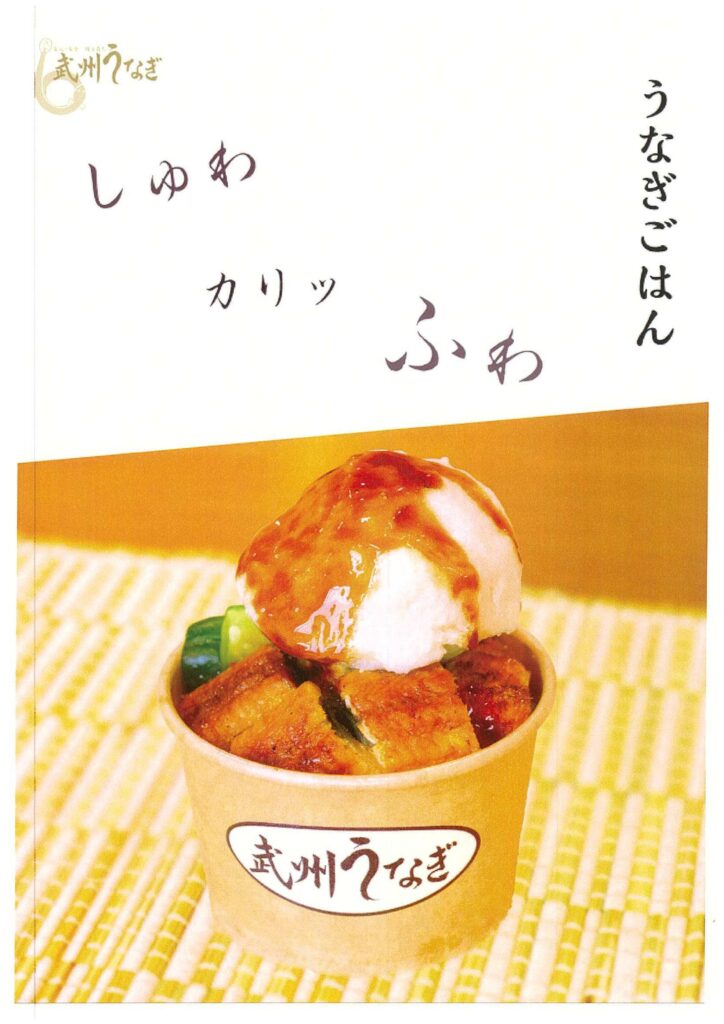 武州うなぎ
うなぎごはん
しゅわ
カリッ
ふわ
武州うなぎ